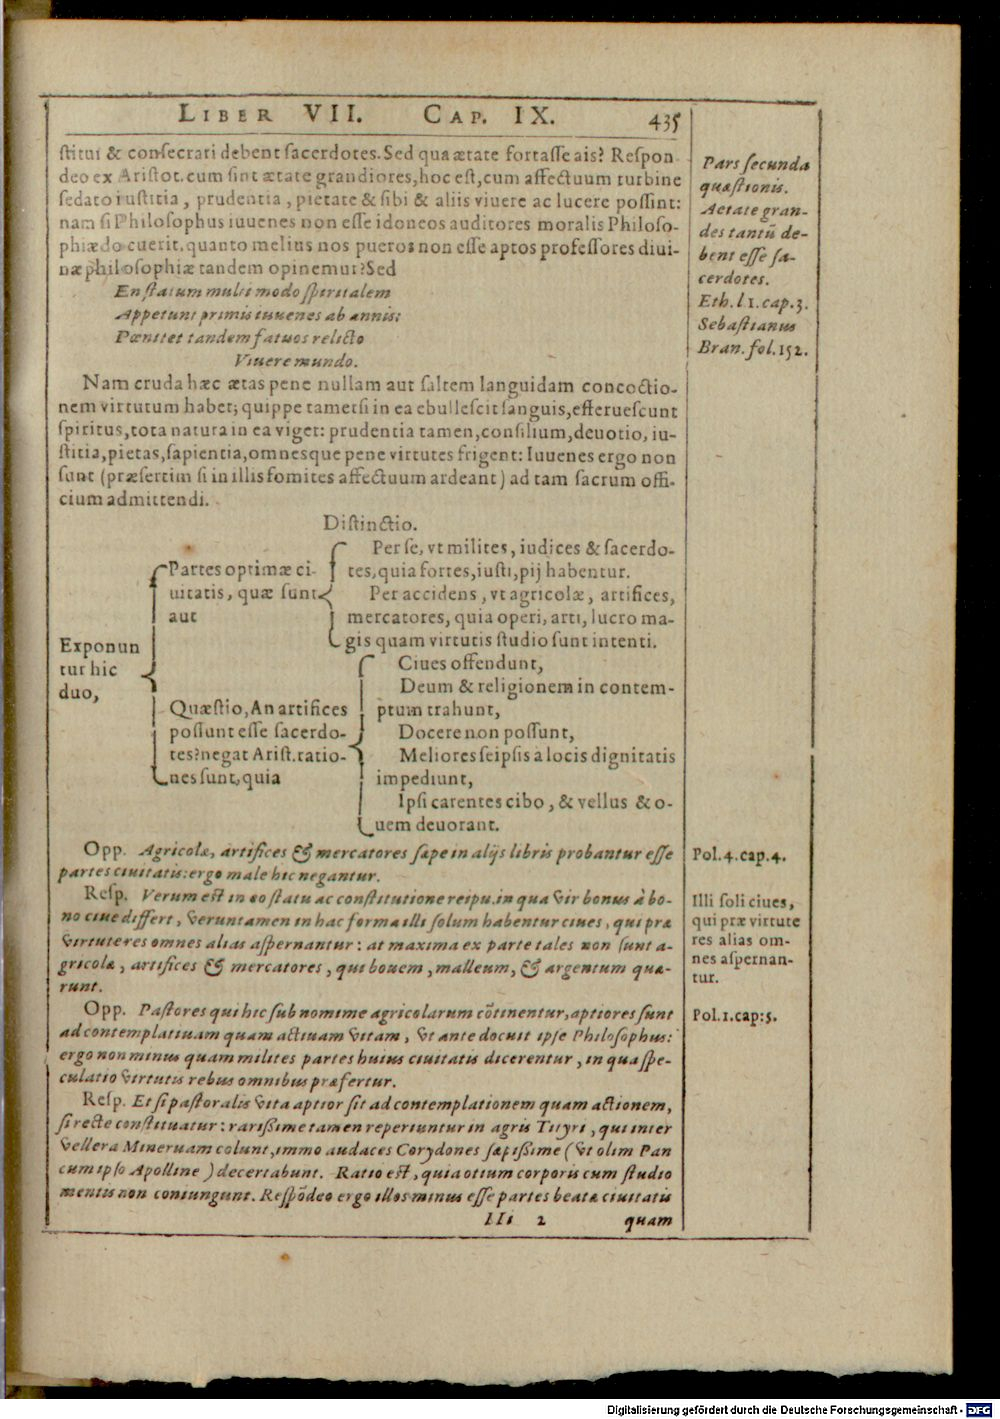 LIBER VII. CAP. IX. 435
ſtitui & conſecrari debent ſacerdotes. Sed qua ætate fortaſſe ais? Reſpon
deo ex Ariſtot. cum ſint ætate grandiores, hoc eſt, cum affectuum turbine
ſedato iuſtitia, prudentia, pietate & ſibi & aliis viuere ac lucere poſſint:
nam ſi Philoſophus iuuenes non eſſe idoneos auditores moralis Philoſo-
phiæ docuerit, quanto melius nos pueros non eſſe aptos profeſſores diui-
næ philoſophiæ tandem opinemur? Sed
En ſtatum multi modo ſpiritalem
Appetunt primis iuuenes ab annis:
Pœnitet tandem fatuos relicto
Viuere mundo.
Nam cruda hæc ætas pene nullam aut ſaltem languidam concoctio-
nem virtutum habet; quippe tametſi in ea ebulleſcit ſanguis, efferueſcunt
ſpiritus, tota natura in ea viget: prudentia tamen, conſilium, deuotio, iu-
ſtitia, pietas, ſapientia, omnesque pene virtutes frigent: Iuuenes ergo non
ſunt (præſertim ſi in illis fomites affectuum ardeant) ad tam ſacrum offi-
cium admittendi.
Pars ſecunda
quæſtionis.
Aetate gran-
des tantū de-
bent eſſe ſa-
cerdotes.
Eth. l 1. cap. 3.
Sebaſtianus
Bran. fol. 152.
Diſtinctio.
Exponun
tur hic
duo,
Partes optimæ ci-
uitatis, quæ ſunt
aut
Per ſe, vt milites, iudices & ſacerdo-
tes, quia fortes, iuſti, pij habentur.
Per accidens, vt agricolæ, artifices,
mercatores, quia operi, arti, lucro ma-
gis quam virtutis ſtudio ſunt intenti.
Quæſtio, An artifices
poſſunt eſſe ſacerdo-
tes? negat Ariſt. ratio-
nes ſunt, quia
Ciues offendunt,
Deum & religionem in contem-
ptum trahunt,
Docere non poſſunt,
Meliores ſeipſis a locis dignitatis
impediunt,
Ipſi carentes cibo, & vellus & o-
uem deuorant.
Opp. Agricolæ, artifices & mercatores ſæpe in alijs libris probantur eſſe
partes ciuitatis: ergo male hic negantur.
Reſp. Verum eſt in eo ſtatu ac conſtitutione reipu. in qua vir bonus à bo-
no ciue differt, veruntamen in hac forma illi ſolum habentur ciues, qui præ
virtute res omnes alias aſpernantur: at maxima ex parte tales non ſunt a-
gricolæ, artifices & mercatores, qui bouem, malleum, & argentum quæ-
runt.
Opp. Paſtores qui hic ſub nomine agricolarum cōtinentur, aptiores ſunt
ad contemplatiuam quam actiuam vitam, vt ante docuit ipſe Philoſophus:
ergo non minus quam milites partes huius ciuitatis dicerentur, in qua ſpe-
culatio virtutis rebus omnibus præfertur.
Reſp. Et ſi paſtoralis vita aptior ſit ad contemplationem quam actionem,
ſi recte conſtituatur: rarißime tamen reperiuntur in agris Tityri, qui inter
vellera Mineruam colunt, immo audaces Corydones ſæpißime (vt olim Pan
cum ipſo Apolline) decertabunt. Ratio eſt, quia otium corporis cum ſtudio
mentis non coniungunt. Reſpōdeo ergo illos minus eſſe partes beatæ ciuitatis
Pol. 4. cap. 4.
Illi ſoli ciues,
qui præ virtute
res alias om-
nes aſpernan-
tur.
Pol. 1. cap: 5.
Iii 2 quam
Digitalisierung gefördert durch die Deutsche Forschungsgemeinschaft - DFG